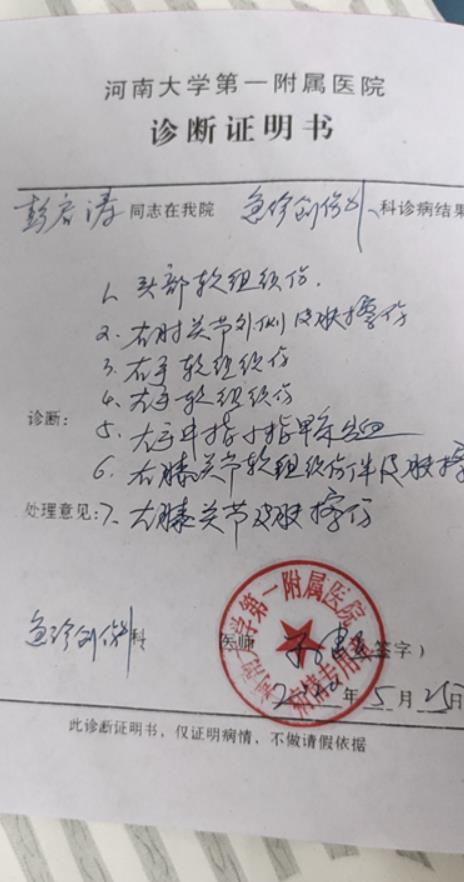 河南大学第一附属医院
诊断证明书
彭启涛 同志在我院 急诊创伤外 科诊病结果
1、头部软组织伤.
2、右肘关节外侧皮肤擦伤
3、右手软组织伤
4、左手软组织伤
诊断:
5、左手中指小指甲床出血
6、右膝关节软组织伤伴皮肤擦
处理意见: 7、左膝关节皮肤擦伤
急诊创伤外科 医师 签字)
河南大学第一附属医院
病情专用章
2020年5月25日
此诊断证明书,仅证明病情,不做请假依据